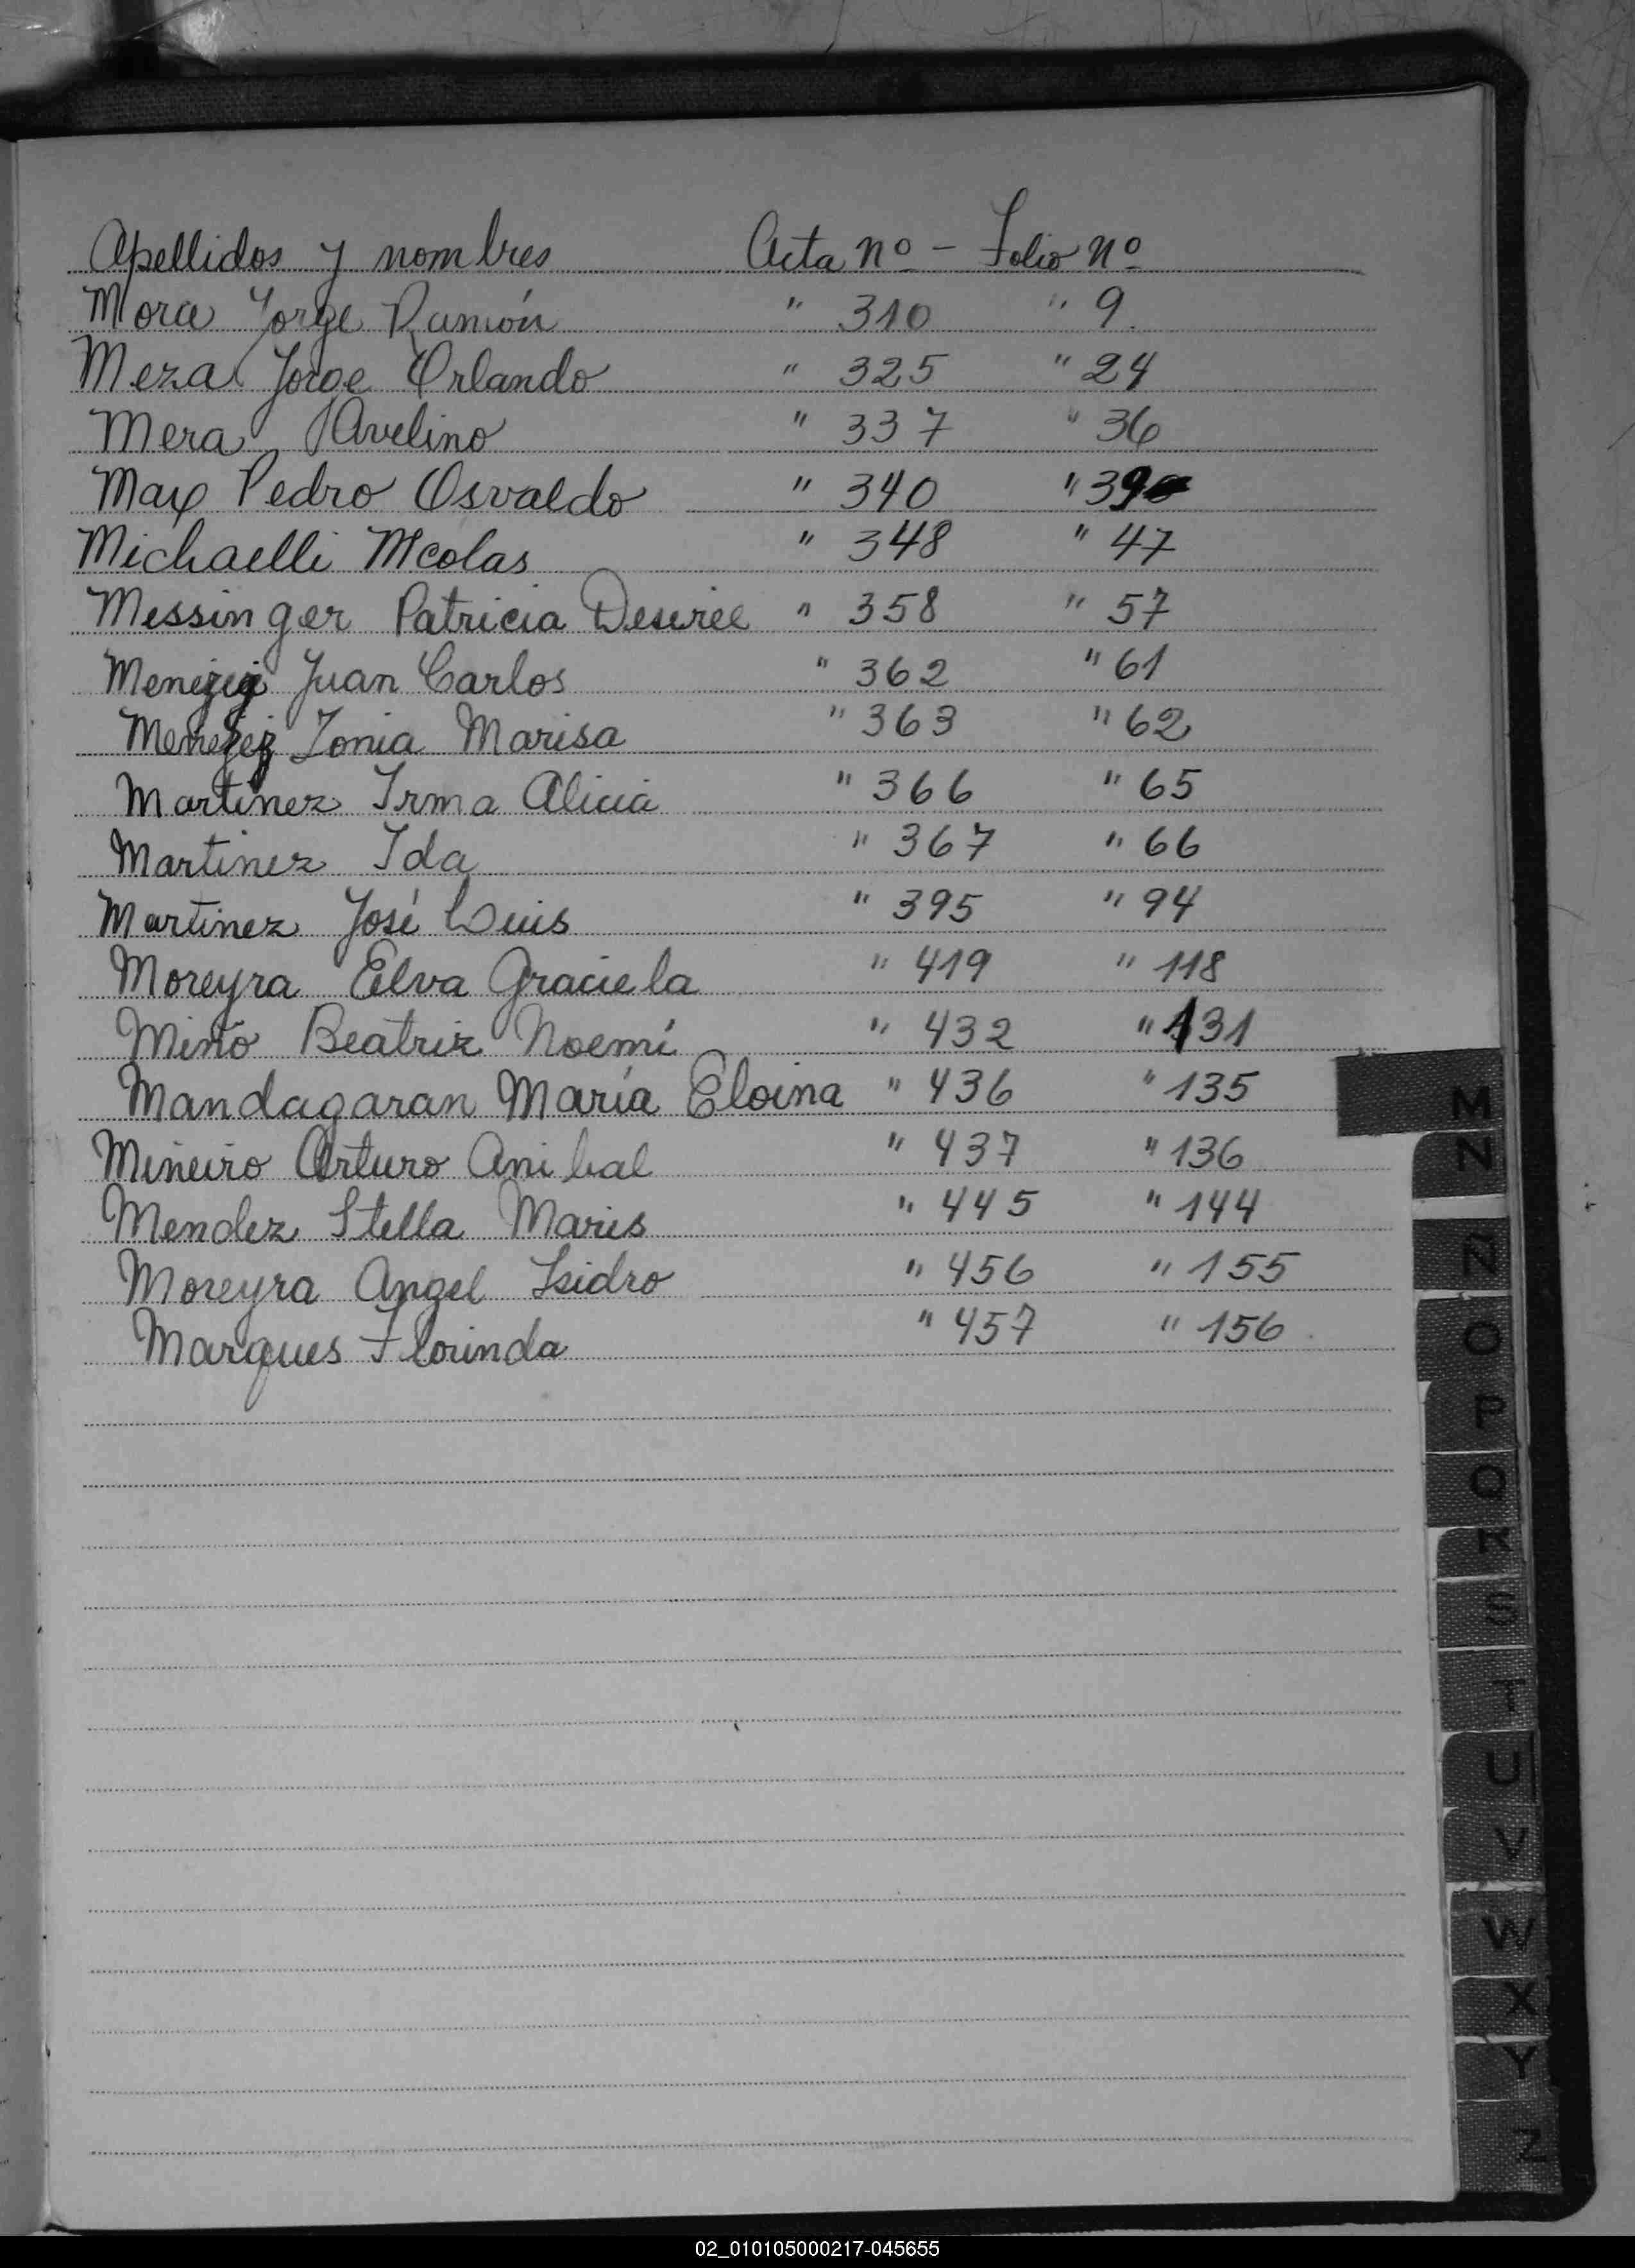 Apellidos y nombres Acta nº - Folio nº
Mora Jorge Ramón " 310 " 9.
Meza Jorge Orlando " 325 " 24
Mera Avelino " 337 " 36
May Pedro Osvaldo " 340 " 39
Michaelli Nicolas " 348 " 47
Messinger Patricia Desirée " 358 " 57
Menezez Juan Carlos " 362 " 61
Menezez Sonia Marisa " 363 " 62
Martinez Irma Alicia " 366 " 65
Martinez Ida " 367 " 66
Martinez José Luis " 395 " 94
Moreyra Elva Graciela " 419 " 118
Miño Beatriz Noemí " 432 " 131
Mandagaran María Eloina " 436 " 135
Mineiro Arturo Anibal " 437 " 136
Mendez Stella Maris " 445 " 144
Moreyra Angel Isidro " 456 " 155
Marques Florinda " 457 " 156
M
N
Ñ
O
P
Q
R
S
T
U
V
W
X
Y
Z
02_010105000217-045655